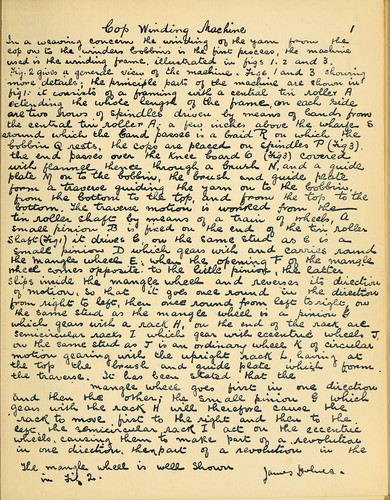 Cop Winding Machine 1
In a weaving concern the winding of the yarn from the
cop on to the winders bobbins is the first process, the machine
used is the winding frame, illustrated in figs 1. 2 and 3.
Fig. 2 gives a general view of the machine. Figs 1 and 3 showing
more details. The principle parts of the machine are shown in
fig 1: it consists of a framing with a central tin roller A
extending the whole length of the frame, on each side
are two rows of spindles driven by means of bands from
the central tin roller A. a few inches above the wharfe S
around which the band passes is a braid R on which the
bobbin Q rests, the cops are placed on spindles P (Fig 3).
the end passes over the knee board O (Fig 3) covered
with flannel, thence through a brush N, and a guide
plate M on to the bobbin, the brush and guide plate
form a traverse guiding the yarn on to the bobbin,
from the bottom to the top, and from the top to the
bottom. The traverse motion is worked from the
tin roller shaft by means of a train of wheels, A
small pinion B is fixed on the end of the tin roller
shaft (Fig 1) it drives C, on the same stud as C is a
small pinion D which gears with and carries round
the mangle wheel E; when the opening F of the mangle
wheel comes opposite to the little pinion, the latter
slips inside the mangle wheel and reverses its direction
of motion, so that it goes one round in the direction
from right to left, then one round from left to right, on
the same stud as the mangle wheel is a pinion G
which gears with a rack H, on the end of the rack are
semicircular racks I which gear with eccentric wheels J.
on the same stud as J is an ordinary wheel K of circular
motion gearing with the upright rack L, having at
the top the brush and guide plate which form
the traverse. It has been stated that the
mangle wheel goes first in one direction
and then the other; the small pinion G which
gears with the rack H will therefore cause the
rack to move first to the right and then to the
left, the semicircular rack I act on the eccentric
wheels, causing them to make part of a revolution
in one direction, then part of a revolution in the
The mangle wheel is well shown
in Fig 2. James Holmes.